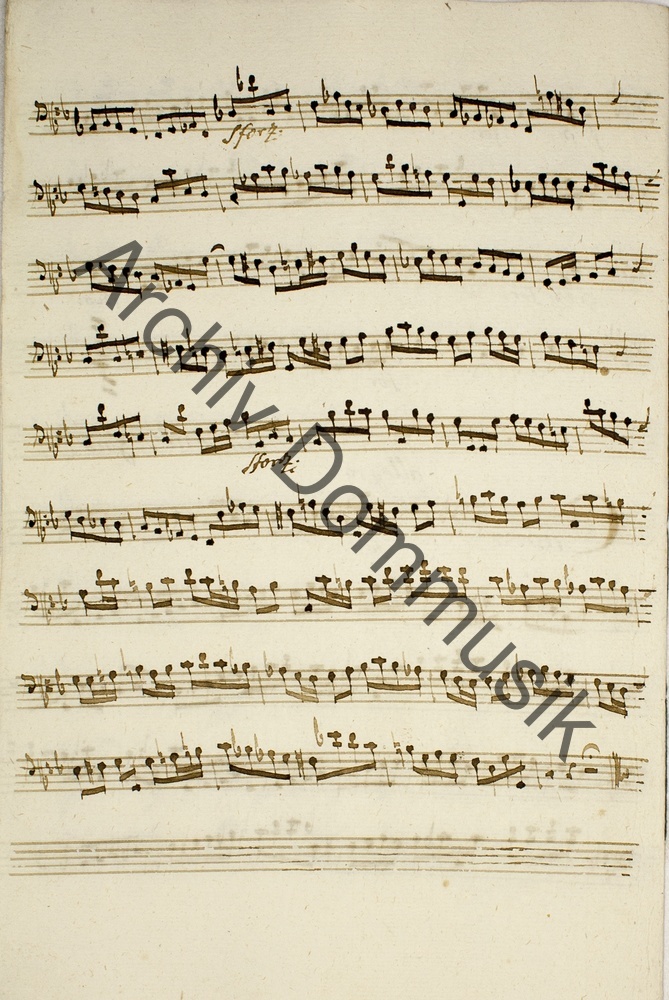 Sforz:
Sforz:
Archiv Dommusik